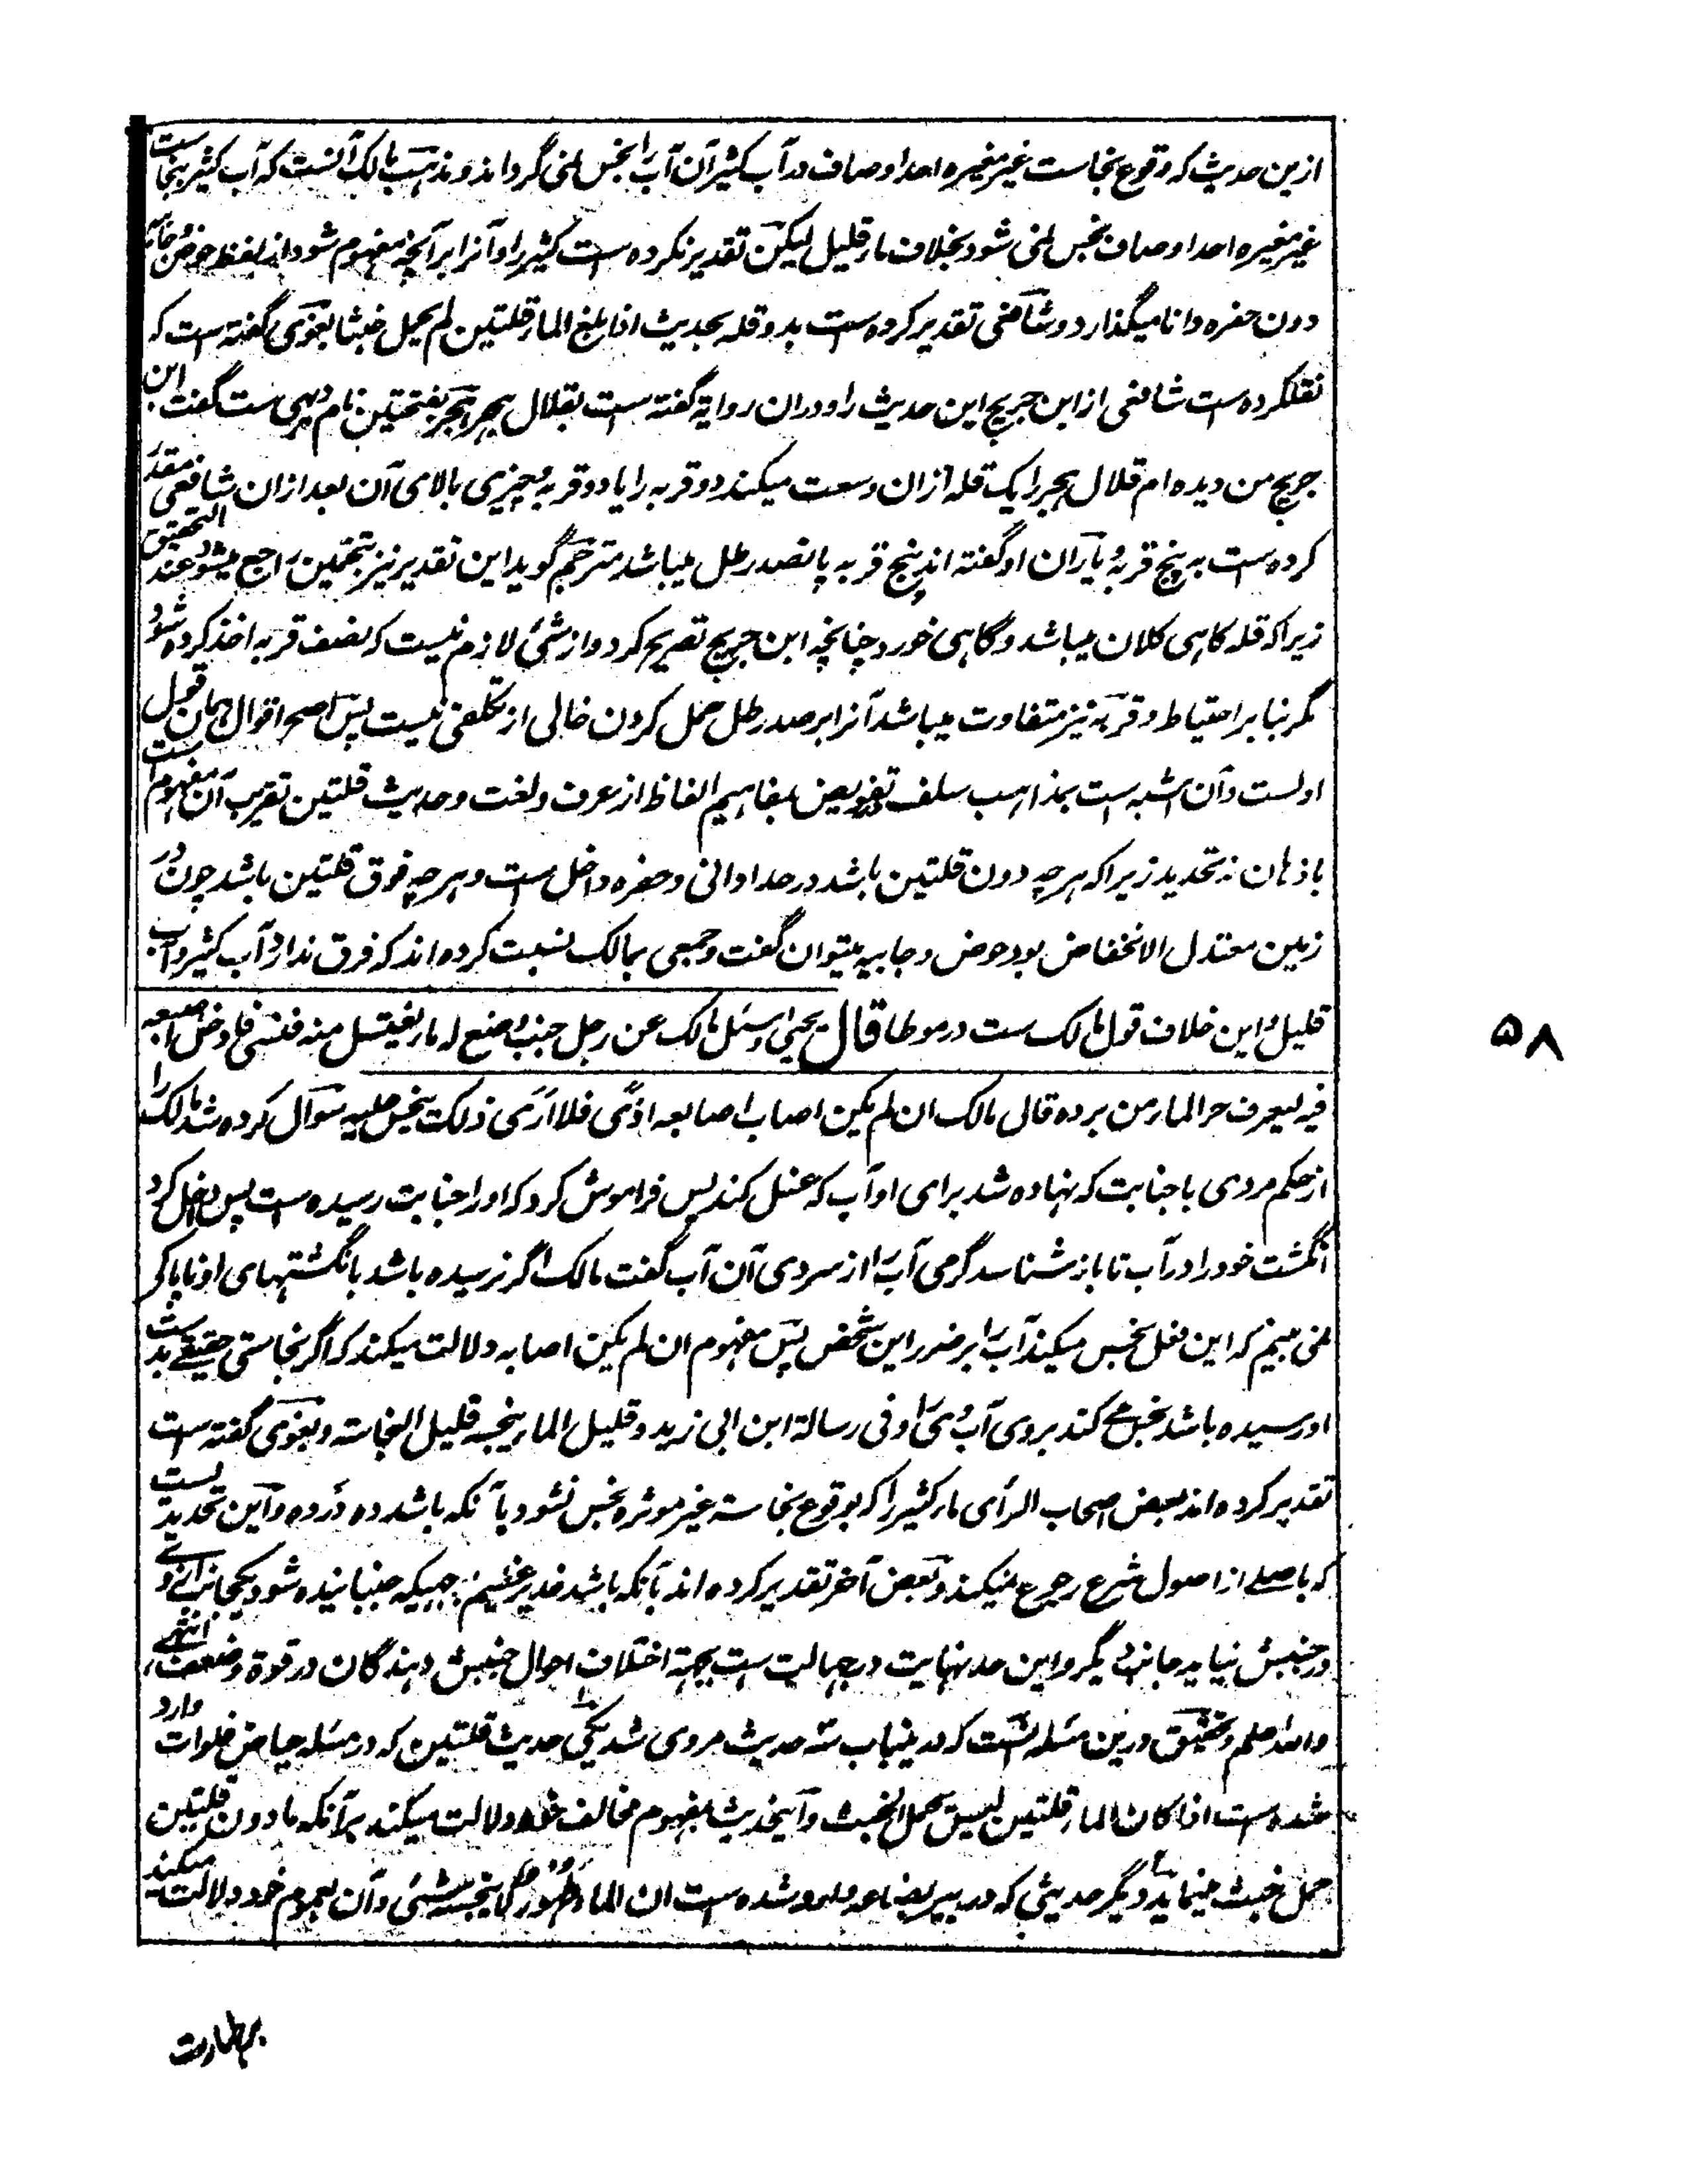 ازین حدیث که وقوع نجاست غیر مغیره احد اوصاف در آب کثیر آن آب را نجس نمی گرداند و مذهب مالک آنست که آب کثیر بنجاست
غیر مغیره احد اوصاف نجس نمی شود بخلاف ماء قلیل لیکن تقدیر نکرده است کثیر را و آنرا بر آنچه مفهوم شود از لفظ حوض و جابیه
دون حفره و انا میگذارد و شافعی تقدیر کرده است بدو قله بحدیث اذا بلغ الماء قلتین لم یحمل خبثا بغوی گفته است که
نقلکرده است شافعی از ابن جریج این حدیث را و دران روایة گفته است بقلال هجر و هجر بفتحتین نام دهی ست گفت ابن
جریج من دیده ام قلال هجر را یک قله ازان وسعت میکند دو قربه را یا دو قربه و چیزی بالای آن بعد ازان شافعی مقدر
کرده است به پنج قربه و یاران او گفته اند پنج قربه پانصد رطل میباشد مترجم گوید این تقدیر نیز بتخمین راجع میشود عند التحقیق
زیرا که قله گاهی کلان میباشد و گاهی خورد چنانچه ابن جریج تصریح کرد و از شئ لازم نیست که نصف قربه اخذ کرده شود
مگر بنا بر احتیاط و قربه نیز متفاوت میباشد آنرا بر صد رطل حمل کردن خالی از تکلفی نیست پس اصح اقوال همان قول
اولست و آن اشبه است بمذاهب سلف تفویض بمفاهیم الفاظ از عرف و لغت و حدیث قلتین تقریب آن مفهوم است
باذهان نه تحدید زیرا که هر چه دون قلتین باشد در حد اوانی و حفره داخل ست و هر چه فوق قلتین باشد چون در
زمین معتدل الانخفاض بود حوض و جابیه میتوان گفت و جمعی بمالک نسبت کرده اند که فرق ندارد آب کثیر و آب
قلیل و این خلاف قول مالک ست در موطا قال یحیی وسئل مالک عن رجل جنب وضع له ماء یغتسل منه فنسی فادخل اصبعه
فیه لیعرف حر الماء من برده قال مالک ان لم یکن اصاب اصابعه اذی فلا اری ذلک ینجس علیه سوال کرده شد مالک را
از حکم مردی با جنابت که نهاده شد برای او آب که غسل کند پس فراموش کرد که او را جنابت رسیده است پس داخل کرد
انگشت خود را در آب تا باز شناسد گرمی آب را از سردی آن آب گفت مالک اگر نرسیده باشد بانگشتهای او ناپاکی
نمی بینم که این فعل نجس میکند آب را بر ضرر این شخص پس مفهوم ان لم یکن اصابه دلالت میکند که اگر نجاستی حقیقی بدست
او رسیده باشد نجس می کند بروی آب وی را و فی رسالة ابن ابی زید و قلیل الماء ینجسه قلیل النجاسة و بغوی گفته است
تقدیر کرده اند بعض اصحاب الرأی ماء کثیر را که بوقوع نجاسة غیر موثره نجس نشود بآنکه باشد ده در ده و این تحدیدیست
که باصلی از اصول شرع رجوع نمیکند و بعض آخر تقدیر کرده اند بآنکه باشد غدیر عظیم بحیثیکه جنبانیده شود یکجانب ازوی و
در جنبش نیاید جانب دیگر و این حد نهایت در جهالت ست بجهة اختلاف احوال جنبش دهندگان در قوة و ضعف انتهی
والله اعلم و تحقیق درین مسئله آنست که درینباب سه حدیث مروی شد یکی حدیث قلتین که در مسئله حیاض فلوات وارد
شده است اذا کان الماء قلتین لیس یحمل الخبث و اینحدیث بمفهوم مخالف خود دلالت میکند بر آنکه ما دون قلتین
حمل خبث مینماید و دیگر حدیثی که در بیر بضاعه وارد شده است ان الماء طهور لا ینجسه شئ و آن بعموم خود دلالت میکند
بر طهارت
۵۸